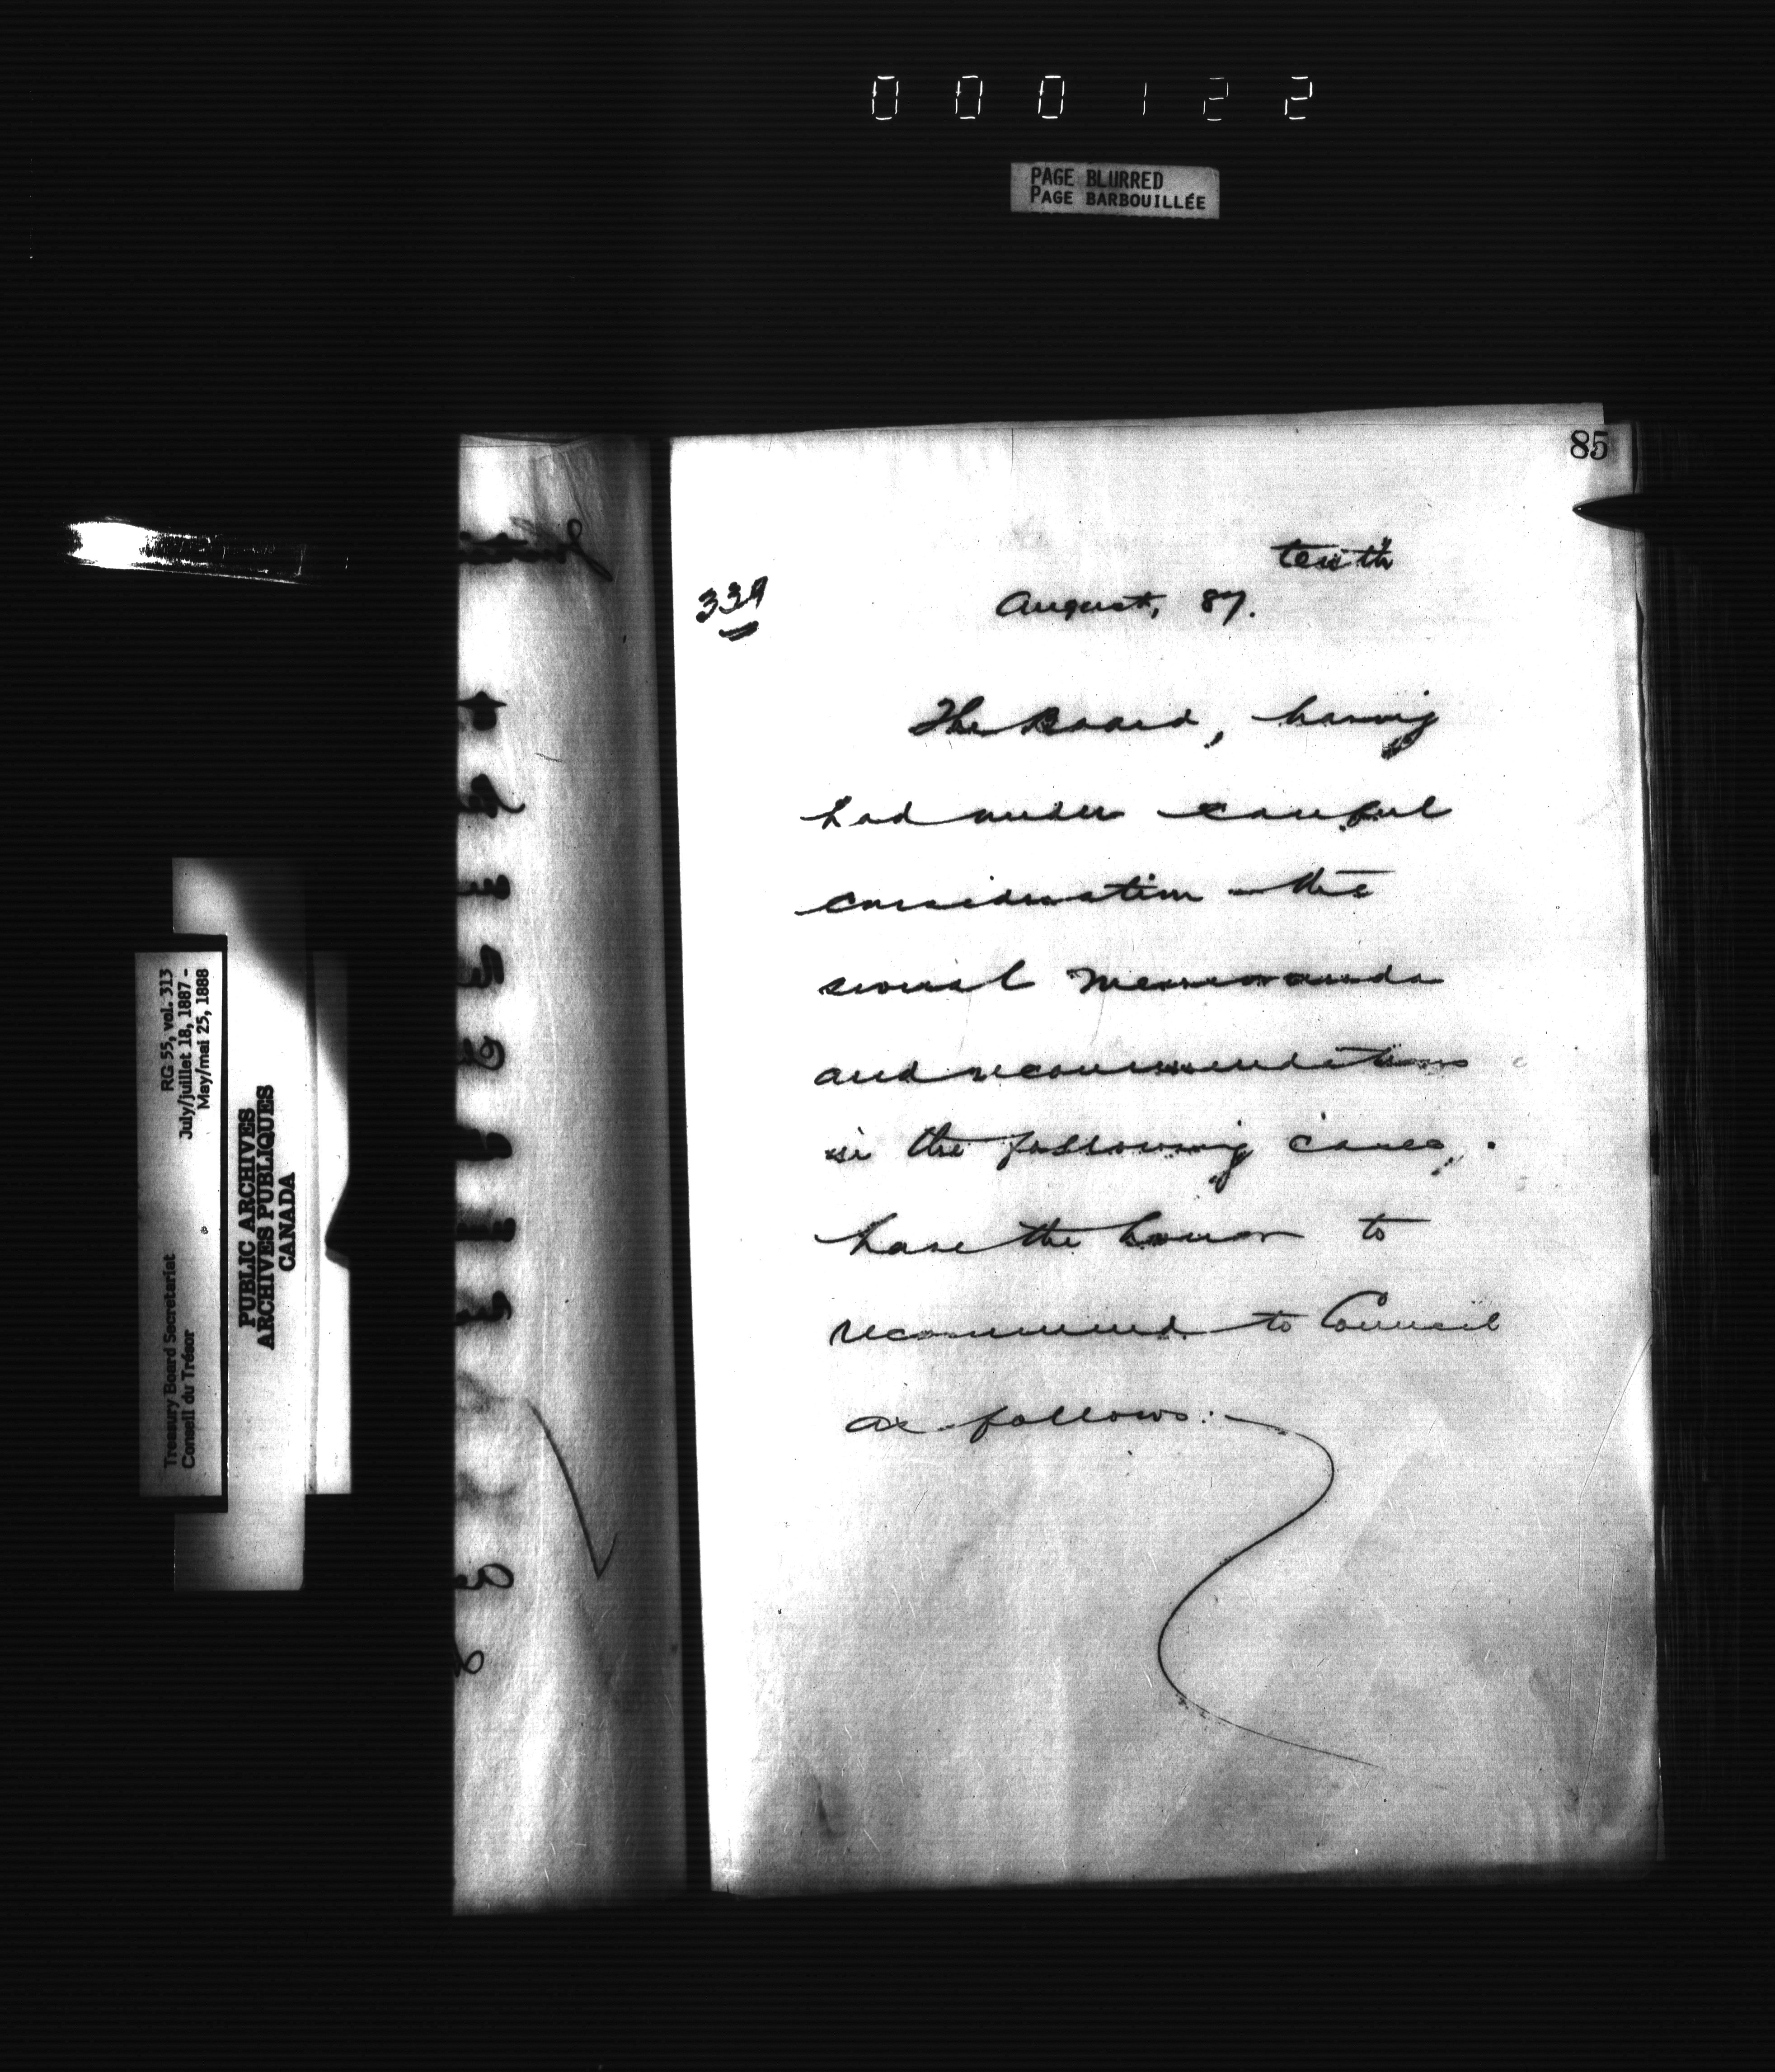 000122
PAGE BLURRED
PAGE BARBOUILLÉE
85
tenth
339
August, 87.
The Board, having
had under careful
consideration the
several Memoranda
and recommendations
in the following cases,
have the honor to
recommend to Council
as follows:-
RG 55, vol. 313
July/juillet 18, 1887 -
May/mai 25, 1888
Treasury Board Secretariat
Conseil du Trésor
PUBLIC ARCHIVES
ARCHIVES PUBLIQUES
CANADA